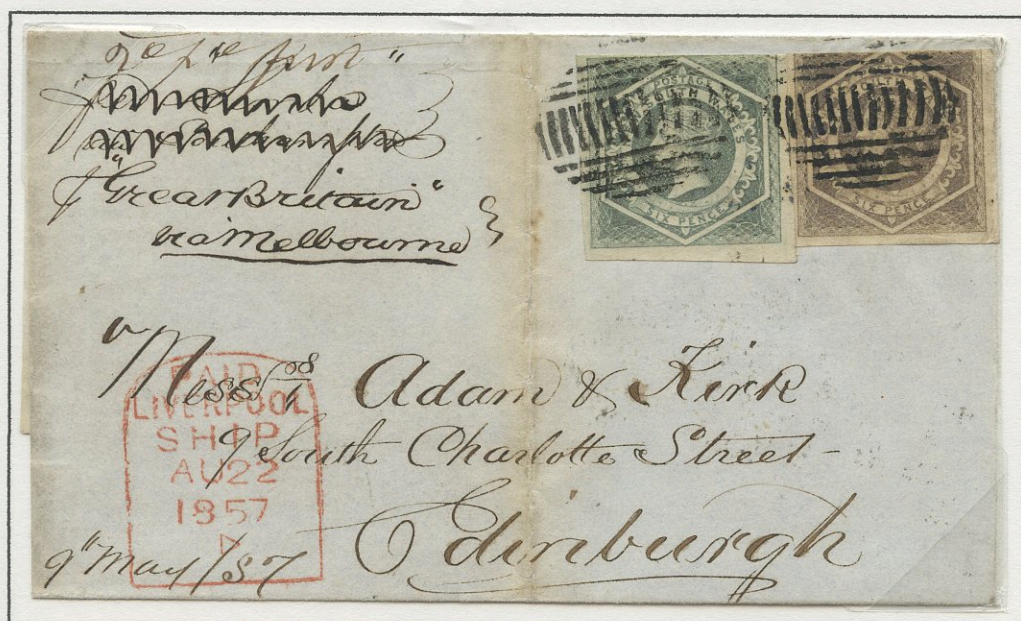 "Great Britain"
via Melbourne
POSTAGE
SOUTH WALES
SIX PENCE
SOUTH W
SIX PENCE
Messrs Adam & Kirk
9 South Charlotte Street
Edinburgh
PAID
LIVERPOOL
SHIP
AU22
1857
9" May /57